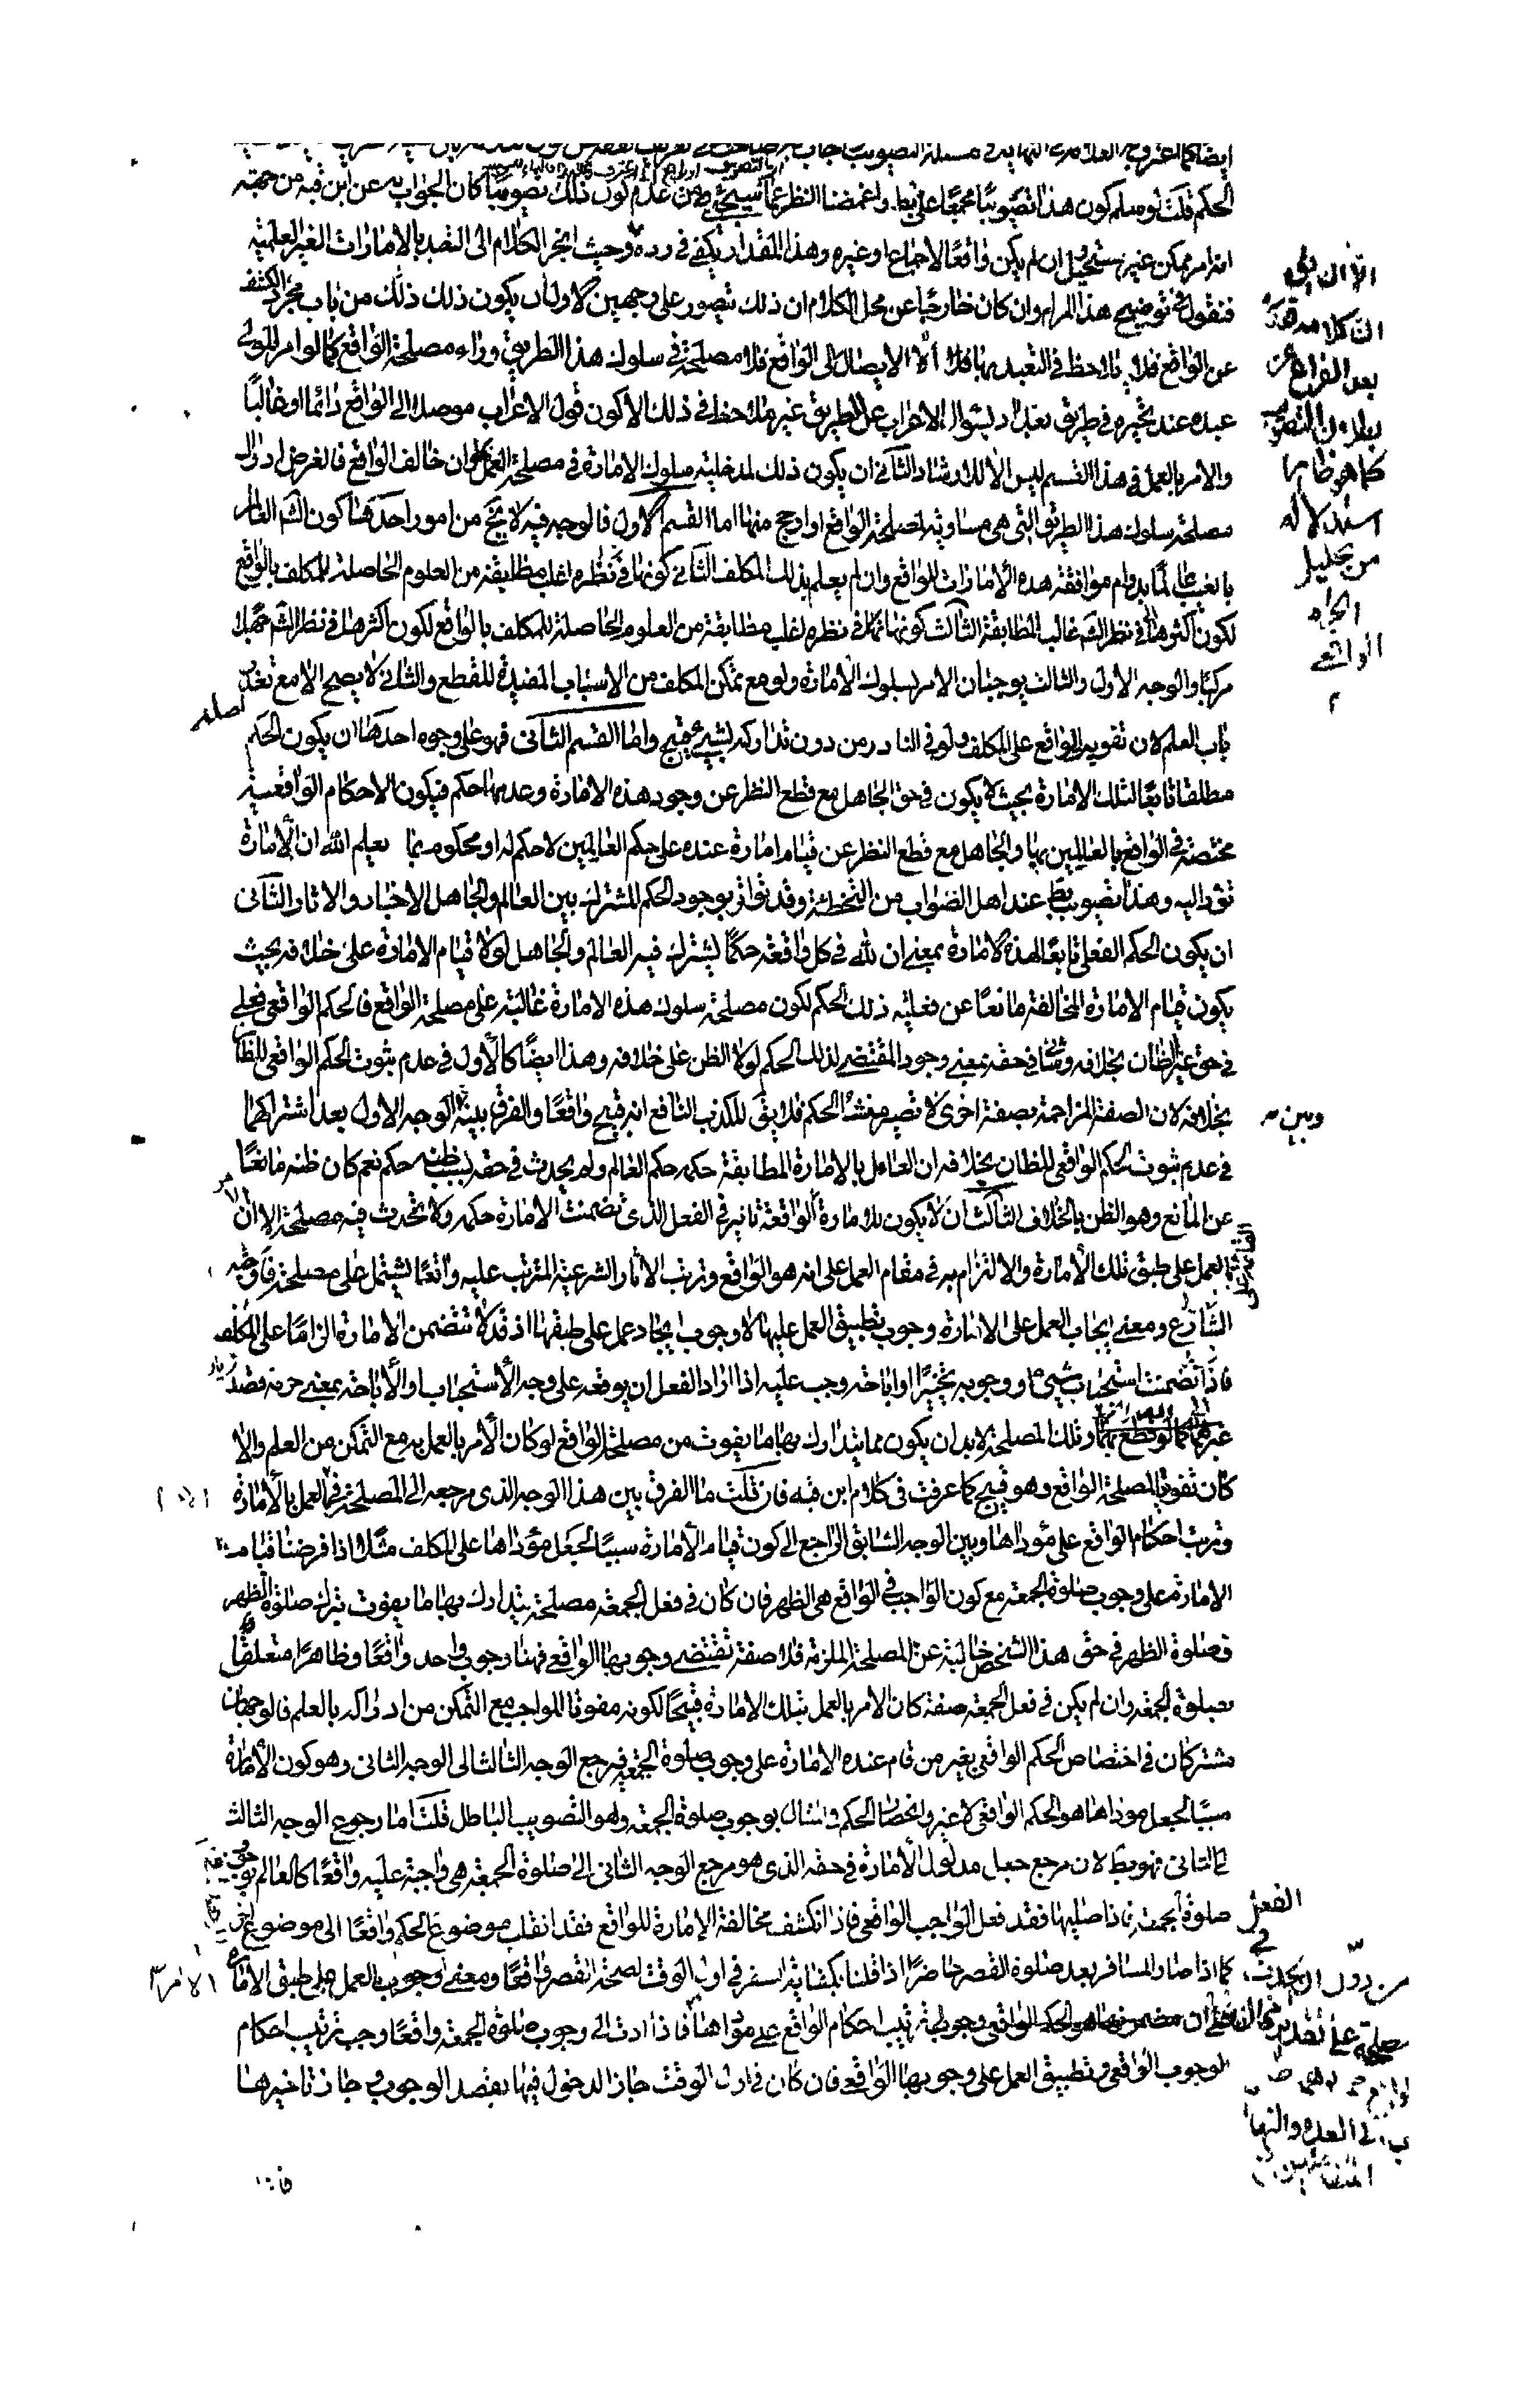 ايضا كما اعترف به العلامة في النهاية في مسئلة التصويب
الحكم قلت لو سلم كون هذا تصويبا مجمعا على بطلانه واغمضنا النظر عما سيجيء من عدم كون ذلك تصويبا كان الجواب به عن ابن قبه من جهة
انه امر ممكن غير مستحيل وان لم يكن واقعا لاجماع او غيره وهذا المقدار يكفي في رده وحيث انجر الكلام الى التعبد بالامارات الغير العلمية
فنقول في توضيح هذا المرام وان كان خارجا عن محل الكلام ان ذلك يتصور على وجهين الاول ان يكون ذلك من باب مجرد الكشف
عن الواقع فلا يلاحظ في التعبد بها الا الايصال الى الواقع فلا مصلحة في سلوك هذا الطريق وراء مصلحة الواقع كما لو امر المولى
عبده عند تحيره في طريق بغداد بسؤال الاعراب عن الطريق غير ملاحظ في ذلك الا كون قول الاعراب موصلا الى الواقع دائما او غالبا
والامر بالعمل في هذا القسم ليس الا للارشاد الثاني ان يكون ذلك لمدخلية سلوك الامارة في مصلحة العمل وان خالف الواقع فالغرض ادراك
مصلحة سلوك هذا الطريق التي هي مساوية لمصلحة الواقع او ارجح منها اما القسم الاول فالوجه فيه لا يخ من امور احدها كون الشم العالم
بالغيب عالما بدوام موافقة هذه الامارات للواقع وان لم يعلم بذلك المكلف الثاني كونها في نظره اغلب مطابقة من العلوم الحاصلة للمكلف بالواقع
لكون اكثرها في نظر الشم غالب المطابقة الثالث كونها في نظره اغلب مطابقة من العلوم الحاصلة للمكلف بالواقع لكون اكثرها في نظر الشم جهلا
مركبا والوجه الاول والثالث يوجبان الامر بسلوك الامارة ولو مع تمكن المكلف من الاسباب المفيدة للقطع والثاني لا يصح الا مع تعذر
باب العلم لان تفويت الواقع على المكلف ولو في النادر من دون تداركه بشيء قبيح واما القسم الثاني فهو على وجوه احدها ان يكون الحكم
مطلقا تابعا لتلك الامارة بحيث لا يكون في حق الجاهل مع قطع النظر عن وجود هذه الامارة وعدمها حكم فيكون الاحكام الواقعية
مختصة في الواقع بالعالمين بها والجاهل مع قطع النظر عن قيام امارة عنده على حكم العالمين لا حكم له او محكوم بما يعلم الله ان الامارة
تؤدي اليه وهذا تصويب بط عند اهل الصواب من التخطئة وقد تواتر بوجود الحكم المشترك بين العالم والجاهل الاخبار والاثار الثاني
ان يكون الحكم الفعلي تابعا لهذه الامارة بمعنى ان لله في كل واقعة حكما يشترك فيه العالم والجاهل لولا قيام الامارة على خلافه بحيث
يكون قيام الامارة المخالفة مانعا عن فعلية ذلك الحكم لكون مصلحة سلوك هذه الامارة غالبة على مصلحة الواقع فالحكم الواقعي فعلي
في حق غير الظان بخلافه وشاني في حقه بمعنى وجود المقتضي لذلك الحكم لولا الظن على خلافه وهذا ايضا كالاول في عدم ثبوت الحكم الواقعي للظان
بخلافه لان الصفة المزاحمة بصفة اخرى لا تصير منشأ الحكم فلا يق للكذب النافع انه قبيح واقعا والفرق بينه الوجه الاول بعد اشتراكهما
في عدم ثبوت الحكم الواقعي للظان بخلافه ان العامل بالامارة المطابقة حكمه حكم العالم ولم يحدث في حقه بسبب ظنه حكم نعم كان ظنه مانعا
عن المانع وهو الظن بالخلاف الثالث ان لا يكون للامارة الواقعة تاثير في الفعل الذي تضمنت الامارة حكمه ولا تحدث فيه مصلحة الا ان
العمل على طبق تلك الامارة والالتزام به في مقام العمل على انه هو الواقع وترتب الاثار الشرعية المترتب عليه واقعا يشتمل على مصلحة فاوجبه
الشارع ومعنى ايجاب العمل على الامارة وجوب تطبيق العمل عليها لا وجوب ايجاد عمل على طبقها اذ قد لا تتضمن الامارة الزاما على المكلف
فاذا تضمنت استحباب شيء او وجوبه تخييرا او اباحته وجب عليه اذا اراد الفعل ان يوقعه على وجه الاستحباب او الاباحة بمعنى حرمة قصد
غيرهما كما لو قطع بهما وتلك المصلحة لا بد ان يكون مما يتدارك بها ما يفوت من مصلحة الواقع لو كان الامر بالعمل به مع التمكن من العلم والا
كان تفويتا لمصلحة الواقع وهو قبيح كما عرفت في كلام ابن قبه فان قلت ما الفرق بين هذا الوجه الذي مرجعه الى المصلحة في العمل بالامارة
وترتب احكام الواقع على مؤداها وبين الوجه السابق الراجع الى كون قيام الامارة سببا لجعل مؤداها على المكلف مثلا اذا فرضنا قيام
الامارة على وجوب صلوة الجمعة مع كون الواجب في الواقع هي الظهر فان كان في فعل الجمعة مصلحة يتدارك بها ما يفوت بترك صلوة الظهر
فصلوة الظهر في حق هذا الشخص خالية عن المصلحة الملزمة فلا صفة تقتضي وجوبها الواقعي فهنا وجوب واحد واقعا وظاهرا متعلق
بصلوة الجمعة وان لم يكن في فعل الجمعة صفة كان الامر بالعمل بتلك الامارة قبيحا لكونه مفوتا للواجب مع التمكن من ادراكه بالعلم فالوجهان
مشتركان في اختصاص الحكم الواقعي بغير من قام عنده الامارة على وجوب صلوة الجمعة فيرجع الوجه الثالث الى الوجه الثاني وهو كون الامارة
سببا لجعل مؤداها هو الحكم الواقعي لا غير وانحصار الحكم في المثال بوجوب صلوة الجمعة وهو التصويب الباطل قلت اما رجوع الوجه الثالث
الى الثاني فهو بط لان مرجع جعل مدلول الامارة في حقه الذي هو مرجع الوجه الثاني الى صلوة الجمعة هي واجبة عليه واقعا كالعالم بوجوب
صلوة الجمعة فاذا صليها فقد فعل الواجب الواقعي فاذا انكشف مخالفة الامارة للواقع فقد انقلب موضوع الحكم واقعا الى موضوع اخر
كما اذا صار المسافر بعد صلوة القصر حاضرا اذا قلنا بكفاية السفر في اول الوقت لصحة القصر واقعا ومعنى وجوب العمل على طبق الامارة
وجوب ترتيب احكام الواقع على مؤداها فاذا ادت الى وجوب صلوة الجمعة واقعا وجب ترتيب احكام
الوجوب الواقعي وتطبيق العمل على وجوبها الواقعي فان كان في اول الوقت جاز الدخول فيها بقصد الوجوب وجاز تاخيرها
الا ان يق
ان كلامه
بعد الفراغ عن
بطلان التصويب
كما هو ظاهر
استدلاله
من تحليل
الحرام
الواقعي
وبين
اصله
الفعل
في